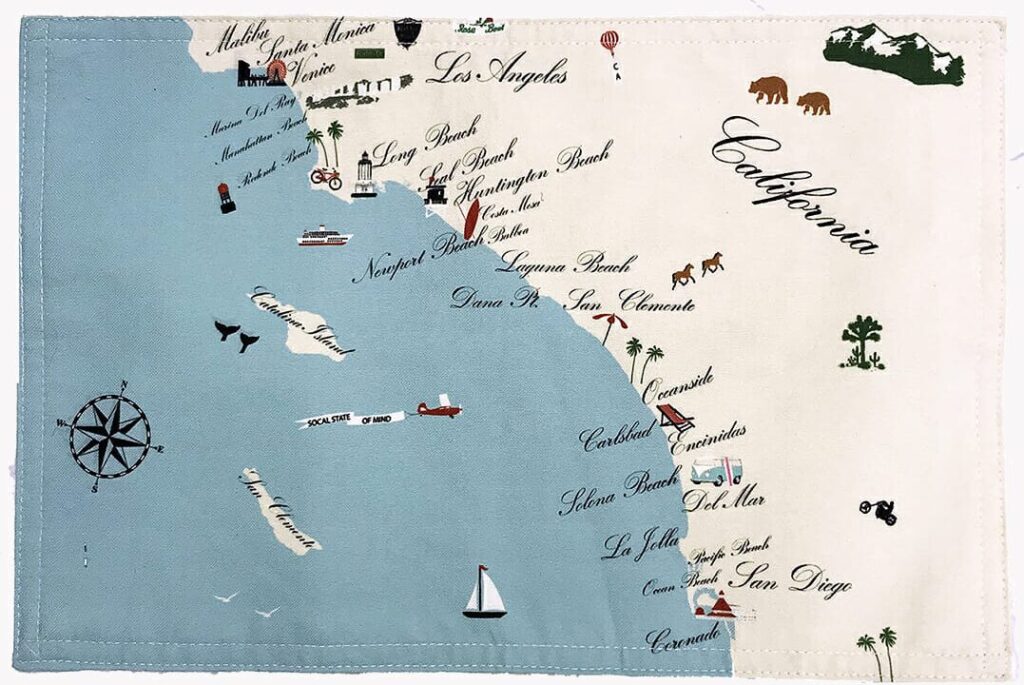 Malibu
Santa Monica
Rose Bowl
Venice
Los Angeles
CA
Marina Del Ray
Manahattan Beach
Redondo Beach
Long Beach
Seal Beach
Huntington Beach
Costa Mesa
Newport Beach
Balboa
California
Laguna Beach
Dana Pt.
San Clemente
Catalina Island
SOCAL STATE OF MIND
Oceanside
Carlsbad
Encinidas
N
W
E
S
San Clemente
Solona Beach
Del Mar
La Jolla
Pacific Beach
Ocean Beach
San Diego
Coronado